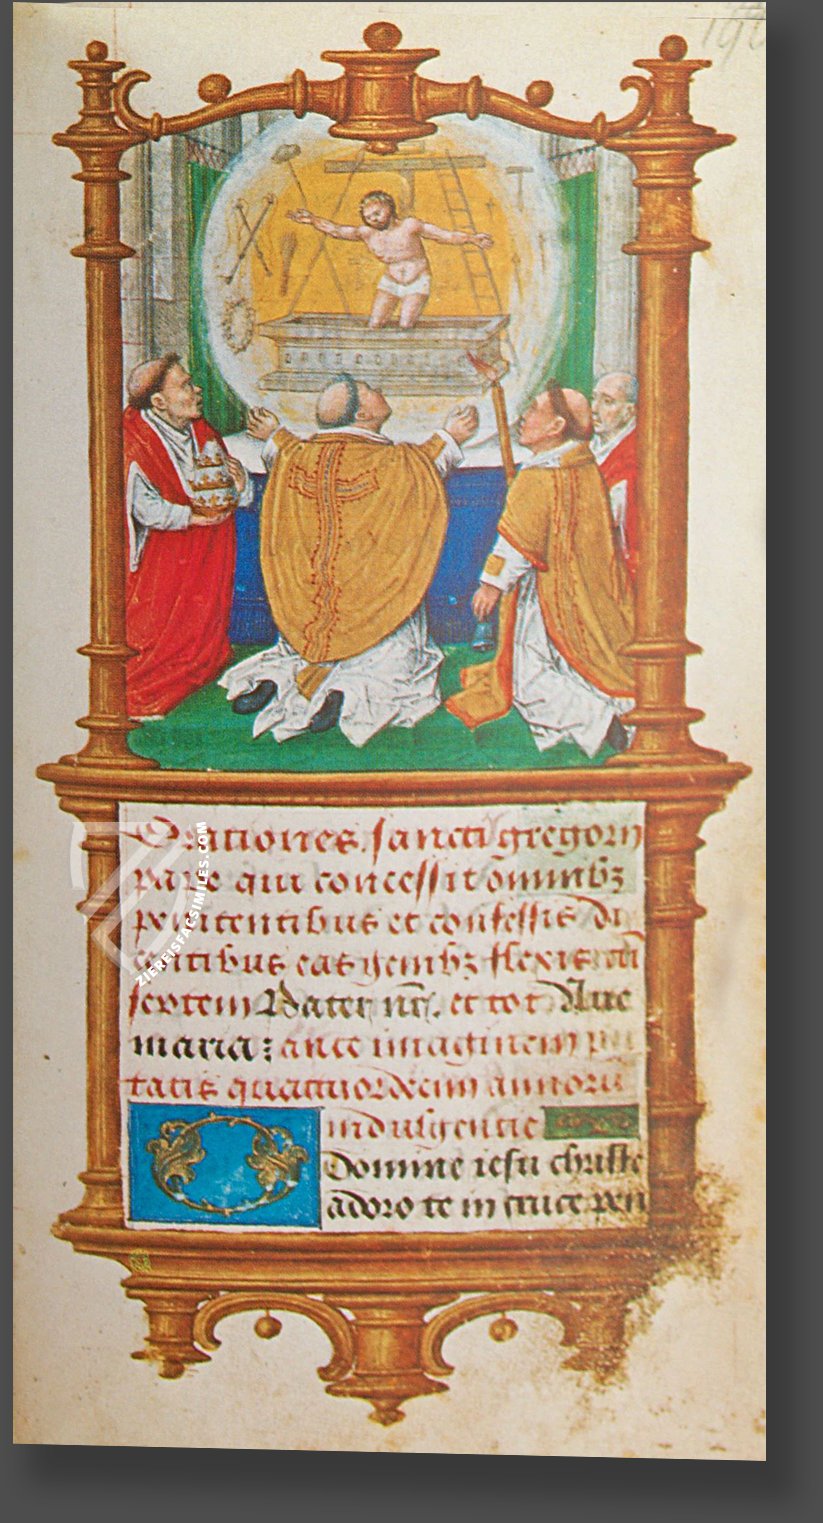 Orationes sancti gregorii
pape qui concessit omnibꝫ
penitentibus et confessis di
centibus eas genibꝫ flexis cū
septem Pater nr̄. et tot Aue
maria: ante imaginem pie
tatis quattuordecim annorū
indulgentie
Domine iesu christe
adoro te in cruce pen
ZIEREISFACSIMILES.COM